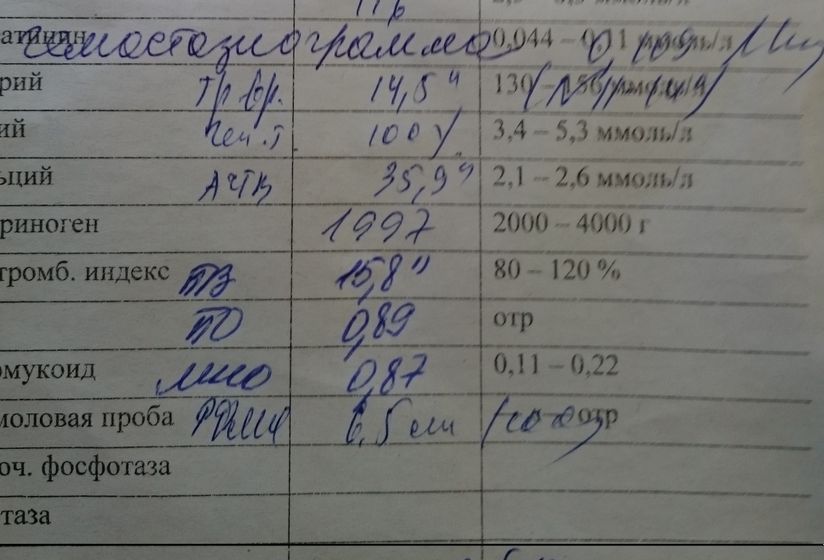 Гемостазиограмма 0,044 – 0,11 ммоль/л
рий Тр. вр. 14,5" 130 – 156 ммоль/л
ий 100% 3,4 – 5,3 ммоль/л
ьций АЧТВ 35,9" 2,1 – 2,6 ммоль/л
риноген 1997 2000 – 4000 г
тромб. индекс ПВ 15,8" 80 – 120 %
ПО 0,89 отр
омукоид МНО 0,87 0,11 – 0,22
моловая проба РФМК 6,5 отр
оч. фосфотаза
таза